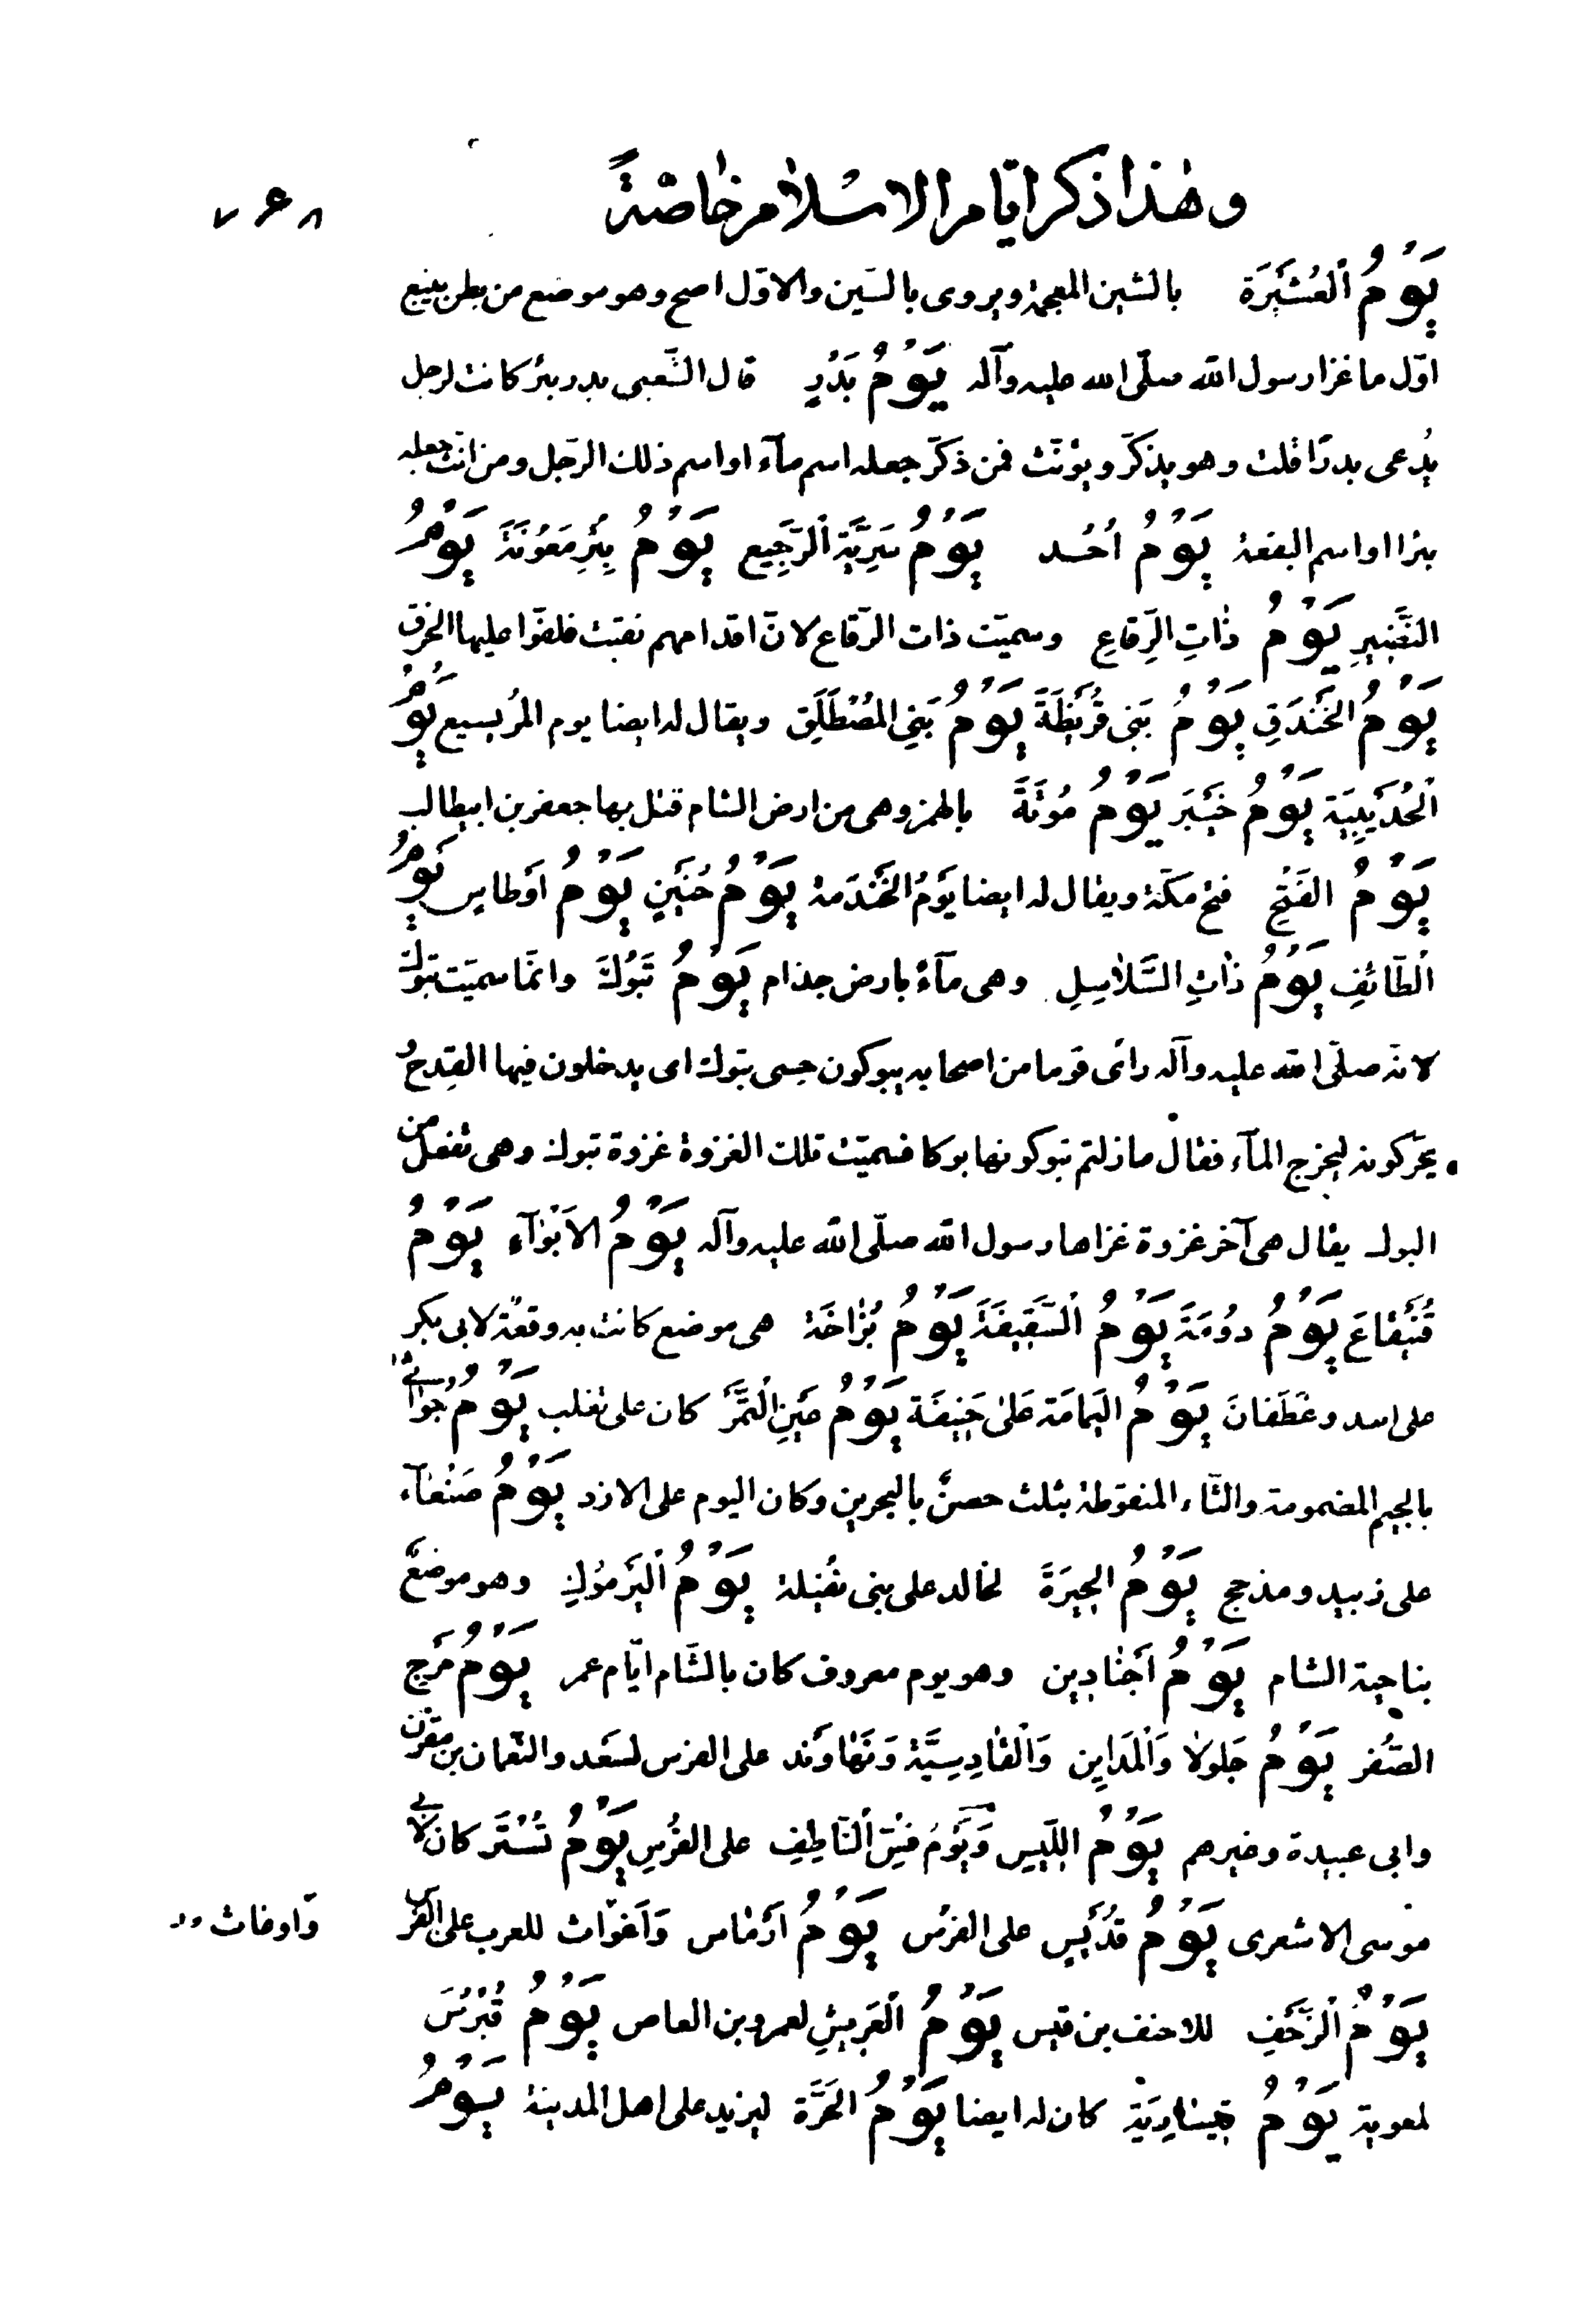 وهٰذا ذكر ايّام الاسْلام خاصّةً
٧۶٨
يَوْمُ اَلعُشَيْرَة بالشين المعجمة ويروى بالسّين والاوّل اصح وهو موضع من بطن ينبع
اوّل ما غزا رسول اللّه صلّى اللّه عليه وآله يَوْمُ بَدْرٍ قال الشّعبى بدر بئر كانت لرجل
يُدعى بدرًا قلت وهو يذكّر ويؤنّث فمن ذكّر جعله اسم مآء او اسم ذلك الرّجل ومن انّث جعله
بئرا او اسم البقعة يَوْمُ اُحُد يَوْمُ سَرِيَّةِ اَلرَّجِيع يَوْمُ بِئْرِ مَعُونَةَ يَوْمُ
النَّضِيرِ يَوْمُ ذٰاتِ الرِقاعِ وسميّت ذات الرّقاع لانّ اقدامهم نقبت فلفوّا عليها الخرق
يَوْمُ الخَنْدَقِ يَوْمُ بَنى قُرَيْظَةَ يَوْمُ بَنِى المُصْطَلَِق ويقال له ايضا يوم المُريسيع يَوْمُ
اَلحُدَيْبِيَة يَوْمُ خَيْبَرَ يَوْمُ مُؤتَةَ بالهمز وهى من ارض الشام قتل بها جعفر بن ابيطالب
يَوْمُ الفَتْحِ فتح مكّة ويقال له ايضا يَوْمُ الخَنْدَمة يَوْمُ حُنَيْنٍ يَوْمُ اَوْطاسٍ يَوْمُ
اَلطّائِفِ يَوْمُ ذٰاتِ السَّلاٰسِلِ وهى مآءٌ بارض جذام يَوْمُ تَبُوْكَ وانّما سميّت تبوك
لانّه صلّى اللّه عليه وآله رأى قوما من اصحابه يبوكون حِسى تبوك اى يدخلون فيها القِدحُ
يحرّكونه ليخرج المآء فقال ما زلتم تبوكونها بوكا فسميّت تلك الغزوة غزوة تبوك وهى تفعل من
البوك يقال هى آخر غزوة غزاها رسول اللّه صلّى اللّه عليه وآله يَوْمُ الاَبْوٰآءِ يَوْمُ
قُنَيْقاعَ يَوْمُ دوُمَةَ يَوْمُ اَلسَّقِيفَةَ يَوْمُ بُزٰاخَة هى موضع كانت به وقعة لابى بكر
على اسد وغَطَفانَ يَوْمُ اليَمامَة عَلىٰ حَنِيفَة يَوْمُ عَيْنِ اَلتَّمْرَ كان على تغلب يَوْمُ جُوٰاثىٰ
بالجيم المضمومة والثّاء المنقوطة بثلث حصنٌ بالبحرين وكان اليوم على الازد يَوْمُ صَنْعٰآء
على زبيد ومذحج يَوْمُ الحِيرَةَ لخالد على بنى بُقَيْلة يَوْمُ اَليَرْموُكِ وهو موضعٌ
بناحية الشام يَوْمُ اَجْنٰادِين وهو يوم معروف كان بالشّام ايّام عمر يَوْمُ مَرْج
الصُّفر يَوْمُ جَلولاٰ وَاَلمَدٰاينِ وَاَلقٰادِسِيَّة وَنَهٰاوَند على الفرس لسَعد والنّعمان بن مقرّن
وابى عبيدة وغيرهم يَوْمُ اللَّيِيسِ وَيَوْمُ قُسّ اَلنّاطِفِ على الفُرْسِ يَوْمُ تُسْتَر كان لابى
موسى الاشعرى يَوْمُ قُدَيْسٍ على الفرْس يَوْمُ اَرْمٰاس وَاَغوٰاث للعرب على الفرس
وٙاوفاث
يَوْمُ اَلزَحْفِ للاحنف بن قيس يَوْمُ اَلعَرِيشِ لعمرو بن العاص يَوْمُ قُبْرُسَ
لمعوية يَوْمُ قيسٰارِيَة كان له ايضا يَوْمُ الحَرَّة ليزيد على اهل المدينة يَوْمُ